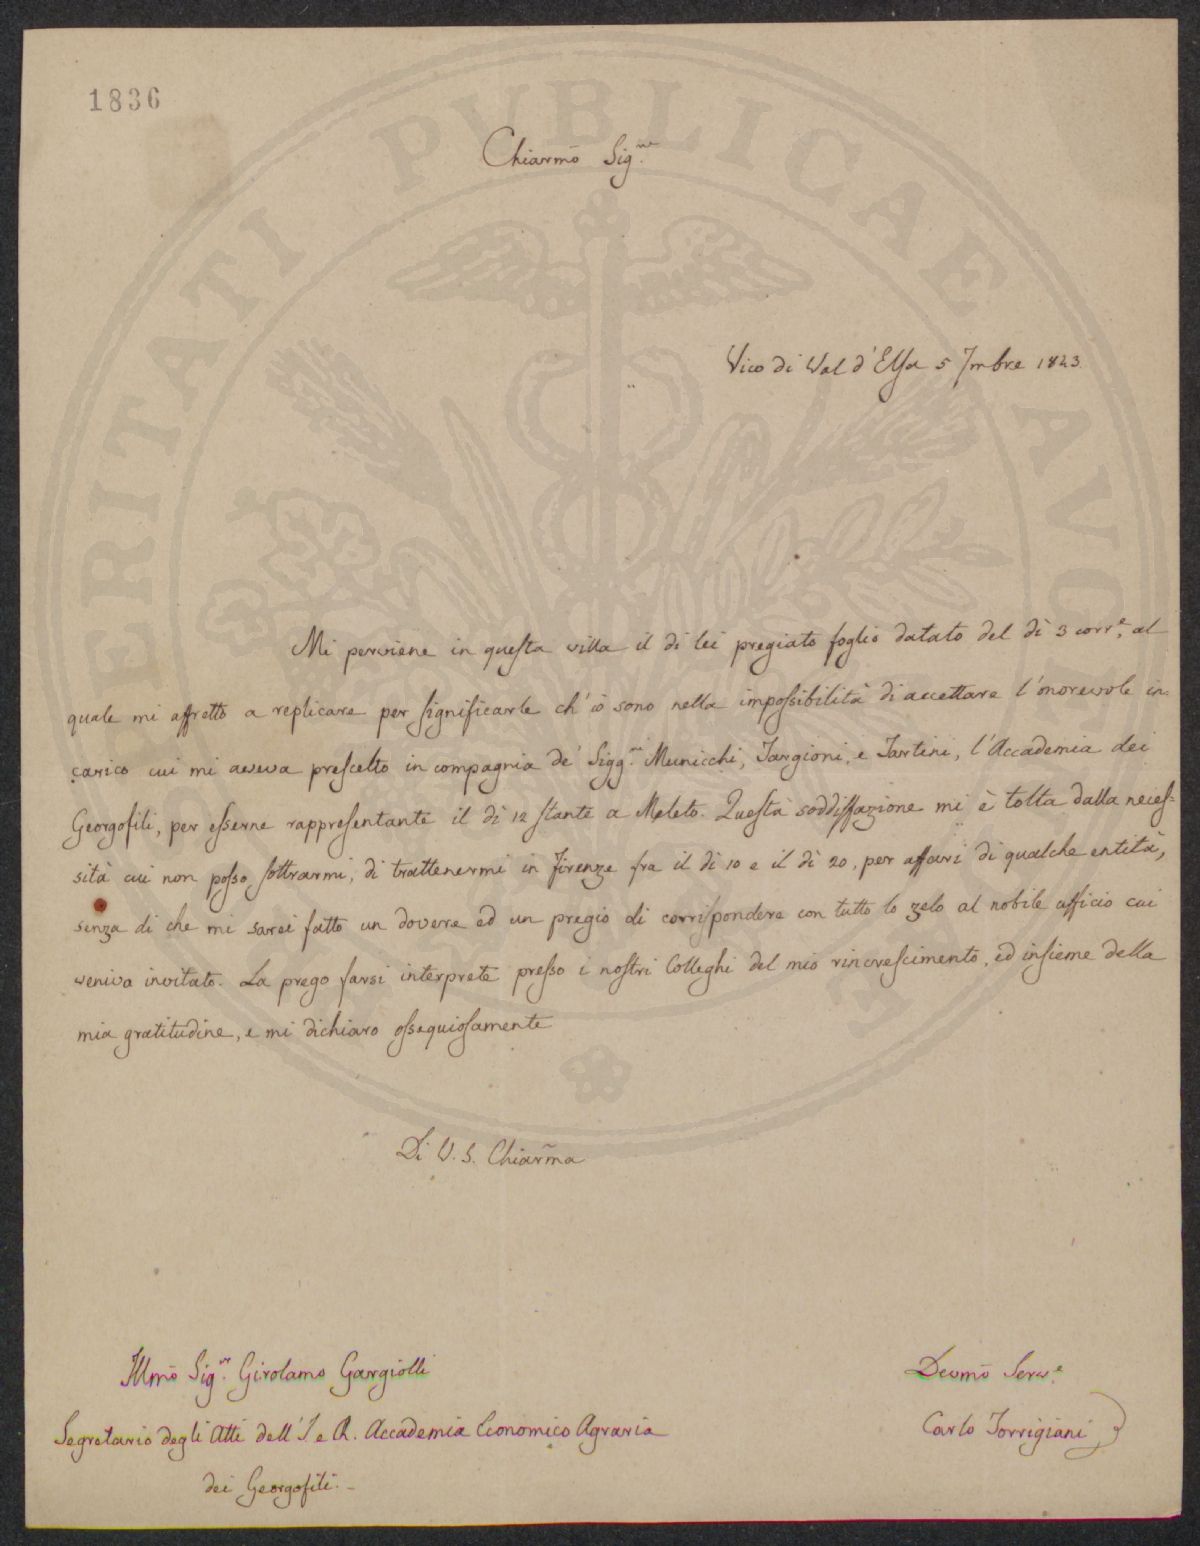 1836
Chiarmo Sig.re
Vico di Val d'Elsa 5 7mbre 1843.
Mi perviene in questa villa il di lei pregiato foglio datato del dì 3 corr.e, al
quale mi affretto a replicare per significarle ch'io sono nella impossibilità di accettare l'onorevole in-
carico cui mi aveva prescelto in compagnia de' Sigg.ri Municchi, Targioni, e Tartini, l'Accademia dei
Georgofili, per esserne rappresentante il dì 12 stante a Meleto. Questa soddisfazione mi è tolta dalla neces-
sità cui non posso sottrarmi, di trattenermi in Firenze fra il dì 10 e il dì 20, per affari di qualche entità,
senza di che mi sarei fatto un dovere ed un pregio di corrispondere con tutto lo zelo al nobile ufficio cui
veniva invitato. La prego farsi interprete presso i nostri Colleghi del mio rincrescimento, ed insieme della
mia gratitudine, e mi dichiaro ossequiosamente
Di V. S. Chiarma
Illmo Sig.r Girolamo Gargiolli
Segretario degli Atti dell' I e R. Accademia Economico Agraria
dei Georgofili.-
Devmo Serv.e
Carlo Torrigiani